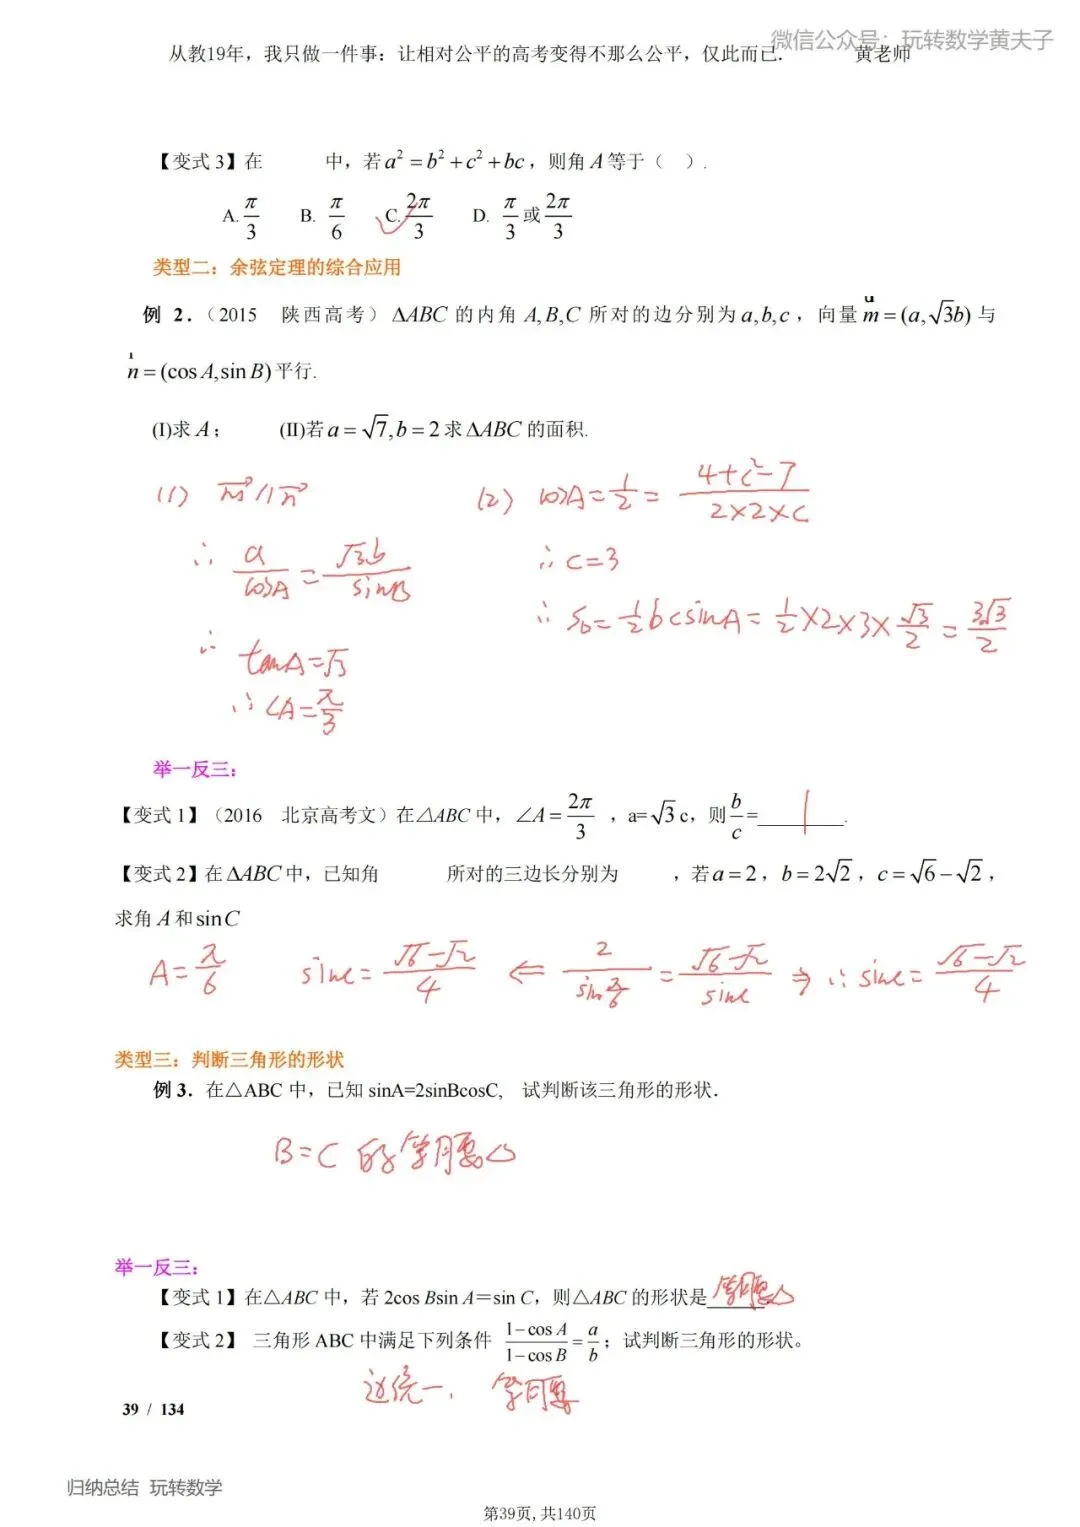 微信公众号：玩转数学黄夫子
从教19年，我只做一件事：让相对公平的高考变得不那么公平，仅此而已． 黄老师
【变式 3】在 中，若 a² = b² + c² + bc，则角 A 等于（ ）.
A. π/3 B. π/6 C. 2π/3 D. π/3 或 2π/3
类型二：余弦定理的综合应用
例 2.（2015 陕西高考）ΔABC 的内角 A,B,C 所对的边分别为 a,b,c，向量 m = (a,√3b) 与
n = (cos A,sin B) 平行.
(I)求 A； (II)若 a = √7,b = 2 求 ΔABC 的面积.
(1) m⃗ // n⃗ (2) cosA = 1/2 = (4+c²-7)/(2×2×c)
∴ a/cosA = √3b/sinB ∴ c=3
∴ S△ = 1/2 bcsinA = 1/2 ×2×3× √3/2 = 3√3/2
∴ tanA=√3
∴ ∠A = π/3
举一反三：
【变式 1】（2016 北京高考文）在△ABC 中，∠A = 2π/3 ，a=√3 c，则 b/c = 1 .
【变式 2】在 ΔABC 中，已知角 所对的三边长分别为 ，若 a = 2，b = 2√2，c = √6 − √2，
求角 A 和 sin C
A = π/6 sinC = (√6-√2)/4 ⇐ 2/sin π/6 = (√6-√2)/sinC ⇒ ∴ sinC = (√6-√2)/4
类型三：判断三角形的形状
例 3．在△ABC 中，已知 sinA=2sinBcosC, 试判断该三角形的形状．
B=C 的等腰△
举一反三：
【变式 1】在△ABC 中，若 2cos Bsin A＝sin C，则△ABC 的形状是 等腰△
【变式 2】 三角形 ABC 中满足下列条件 (1−cos A)/(1−cos B) = a/b；试判断三角形的形状。
边统一， 等腰
39 / 134
归纳总结 玩转数学
第39页,共140页